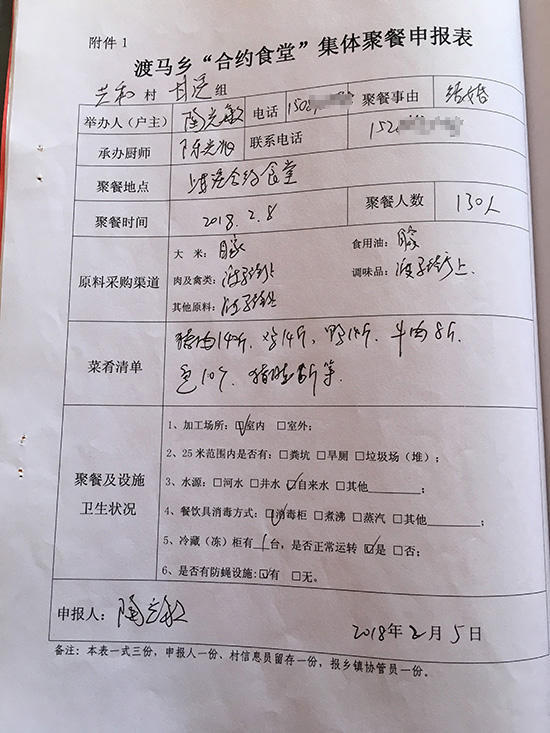 附件 1
渡马乡“合约食堂”集体聚餐申报表
共和 村 组
举办人(户主) 电话 聚餐事由 结婚
承办厨师 联系电话
聚餐地点 合约食堂
聚餐时间 2018.2.8 聚餐人数 130人
原料采购渠道
大 米: 自家 食用油: 自家
肉及禽类: 渡马街上 调味品: 渡马街上.
其他原料: 渡马街上
菜肴清单
猪肉140斤. 牛肉8斤.
等.
聚餐及设施卫生状况
1、加工场所:☑室内 □室外;
2、25 米范围内是否有:□粪坑 □旱厕 □垃圾场(堆);
3、水源:□河水 □井水 ☑自来水 □其他________;
4、餐饮具消毒方式:☑消毒柜 □煮沸 □蒸汽 □其他________;
5、冷藏(冻)柜有 1 台,是否正常运转 ☑是 □否;
6、是否有防蝇设施:☑有 □无。
申报人:
2018年2月5日
备注:本表一式三份,申报人一份、村信息员留存一份,报乡镇协管员一份。